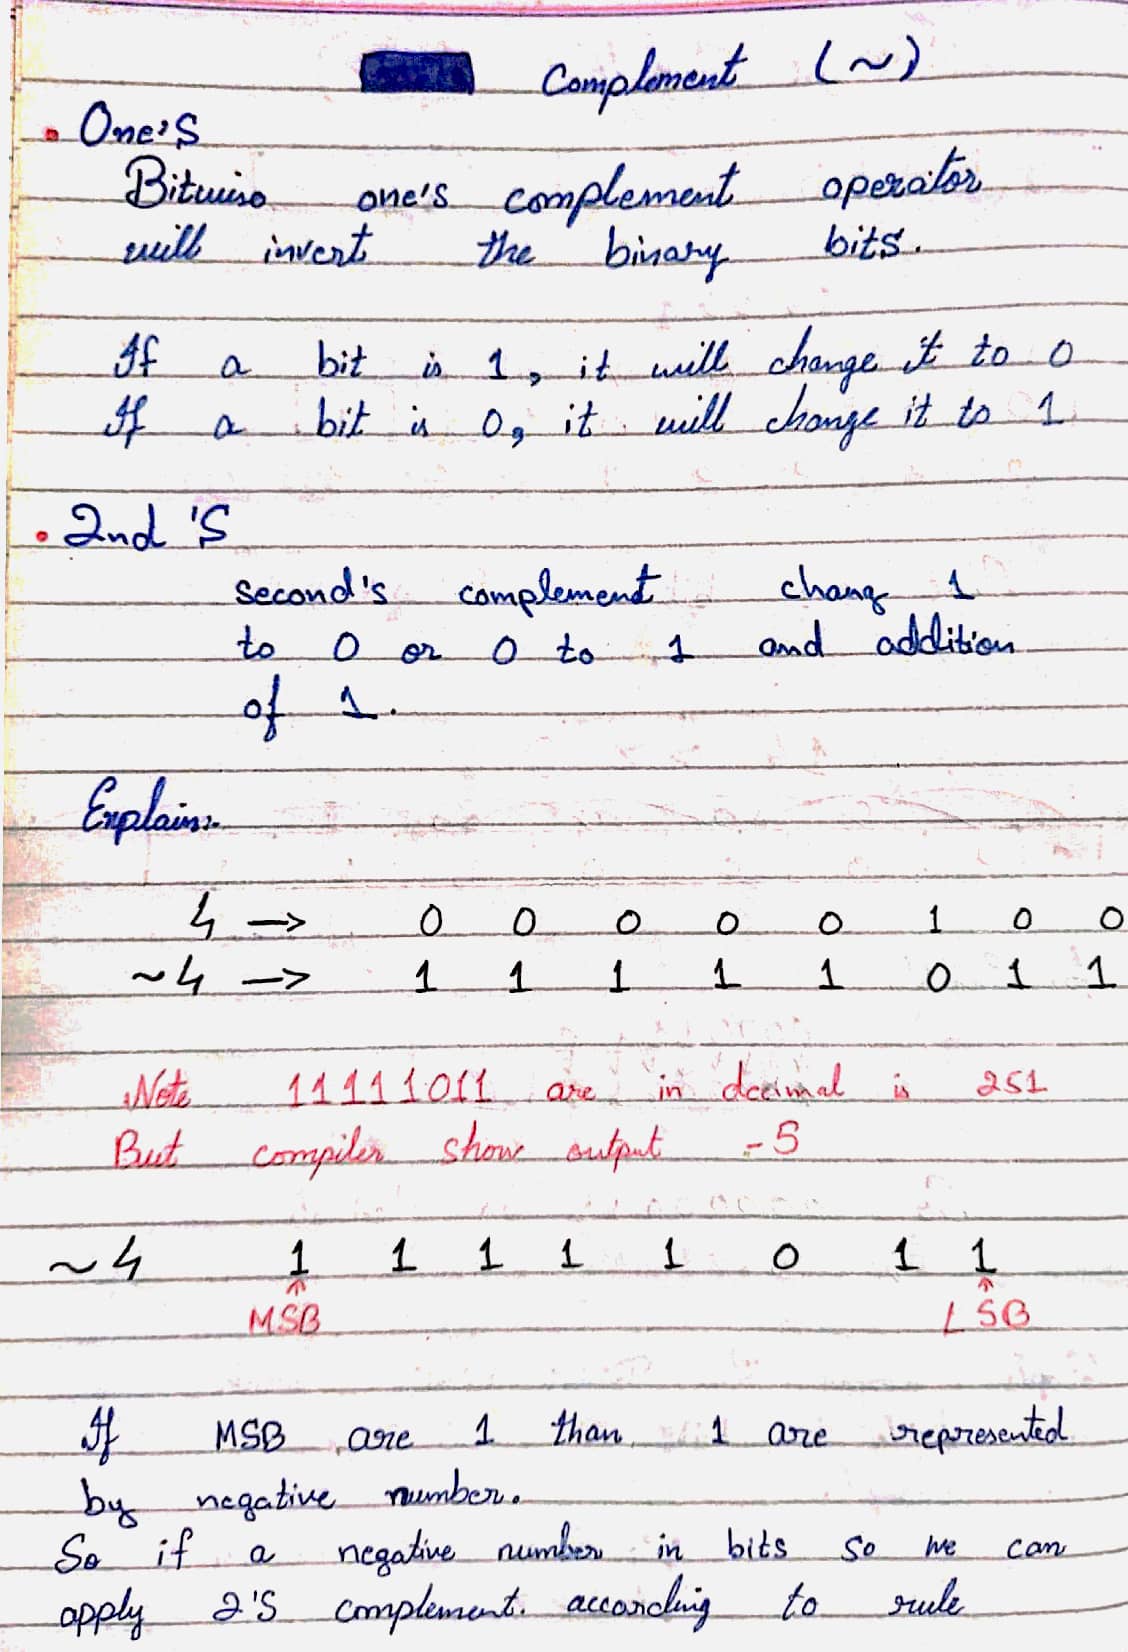 Complement (~)
• One's
Bitwise one's complement operator
will invert the binary bits.
If a bit is 1, it will change it to 0
If a bit is 0, it will change it to 1
• 2nd 'S
second's complement chang 1
to 0 or 0 to 1 and addition
of 1.
Explain:-
4 -> 0 0 0 0 0 1 0 0
~4 -> 1 1 1 1 1 0 1 1
Note 11111011 are in decimal is 251
But compiler show output -5
~4 1 1 1 1 1 0 1 1
MSB LSB
If MSB are 1 than 1 are represented
by negative number.
So if a negative number in bits so we can
apply 2'S complement. according to rule